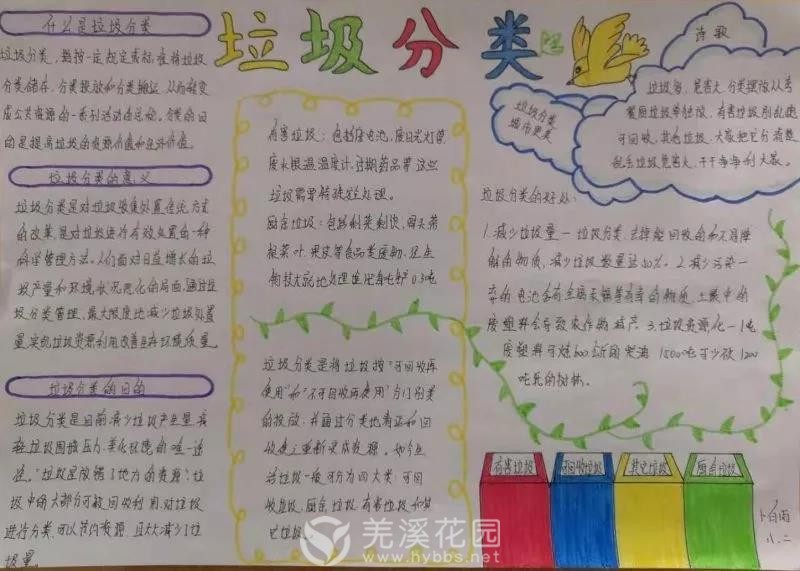 垃圾分类
什么是垃圾分类
垃圾分类,指按一定规定或标准将垃圾
分类储存、分类投放和分类搬运,从而转变
成公共资源的一系列活动的总称。分类的目
的是提高垃圾的资源价值和经济价值。
垃圾分类的意义
垃圾分类是对垃圾收集处置传统方式
的改革,是对垃圾进行有效处置的一种
科学管理方法。人们面对日益增长的垃
圾产量和环境状况恶化的局面,通过垃
圾分类管理,最大限度地减少垃圾处置
量,实现垃圾资源利用改善生存环境质量。
垃圾分类的目的
垃圾分类是目前减少垃圾产生量,减
轻垃圾围城压力,美化环境的唯一途
径。"垃圾是放错了地方的资源"垃
圾中的大部分可被回收利用,对垃圾
进行分类,可以节约资源,且大大减少了垃
圾量。
有害垃圾:包括废电池,废日光灯管,
废水银温温度计,过期药品等这些
垃圾需要特殊处理。
厨余垃圾:包括剩菜剩饭,骨头菜
根菜叶、果皮等食品类废物,经生
物技术就地处理堆肥每吨产0.3吨
垃圾分类是将垃圾按"可回收再
使用"和"不可回收再使用"为门别类
的投放,并通过分类地清运和回
收使之重新变成资源。如今生
活垃圾一般可分为四大类:可回
收垃圾,厨余垃圾,有害垃圾和其
它垃圾。
诗歌
垃圾多,危害大,分类摆放从考
餐厨垃圾单独放,有害垃圾别乱跑
可回收,其他垃圾,大家把它分清楚
乱丢垃圾危害大,干干净净利大家。
垃圾分类
城市更美
垃圾分类的好处:
1.减少垃圾量一垃圾分类,去掉能回收的和不易降
解的物质,减少垃圾数量达60%。2.减少污染一
弃的电池含有金属汞镉等有毒的物质,土壤中的
废塑料会导致农作物减产。3.垃圾资源化一1吨
废塑料可炼600公斤的柴油 1500吨可少砍1200
吨纸的树林。
有害垃圾
可回收垃圾
其它垃圾
厨余垃圾
八.二
羌溪花园
www.hybbs.net